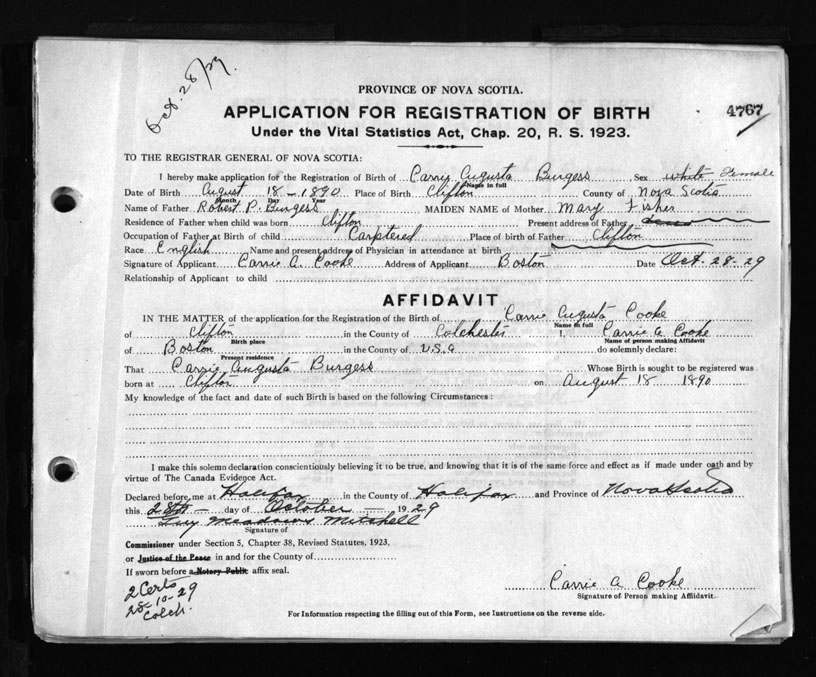 Oct. 28/29.
PROVINCE OF NOVA SCOTIA.
APPLICATION FOR REGISTRATION OF BIRTH
4767
Under the Vital Statistics Act, Chap. 20, R. S. 1923.
TO THE REGISTRAR GENERAL OF NOVA SCOTIA:
I hereby make application for the Registration of Birth of Carry Augusta Burgess Sex white Female
Name in full
Date of Birth August 18 - 1890 Place of Birth Clifton County of Nova Scotia
Month Day Year
Name of Father Robert P. Burgess MAIDEN NAME of Mother Mary Fisher
Residence of Father when child was born Clifton Present address of Father
Occupation of Father at Birth of child Carptered Place of birth of Father Clifton
Race English Name and present address of Physician in attendance at birth
Signature of Applicant Carrie A. Cooke Address of Applicant Boston Date Oct. 28-29
Relationship of Applicant to child
AFFIDAVIT
IN THE MATTER of the application for the Registration of the Birth of Carrie Augusta Cooke
Name in full
of Clifton in the County of Colchester I, Carrie A Cooke
Birth place Name of person making Affidavit
of Boston in the County of U.S.A do solemnly declare:
Present residence
That Carrie Augusta Burgess Whose Birth is sought to be registered was
born at Clifton on August 18 1890
My knowledge of the fact and date of such Birth is based on the following Circumstances:
I make this solemn declaration conscientiously believing it to be true, and knowing that it is of the same force and effect as if made under oath and by
virtue of The Canada Evidence Act.
Declared before me at Halifax in the County of Halifax and Province of Nova Scotia
this 28th day of October 1929
Meadows Mitchell
Signature of
Commissioner under Section 5, Chapter 38, Revised Statutes, 1923,
or Justice of the Peace in and for the County of
If sworn before a Notary Public affix seal.
2 Certs
28-10-29
Colch.
Carrie A Cooke
Signature of Person making Affidavit.
For Information respecting the filling out of this Form, see Instructions on the reverse side.